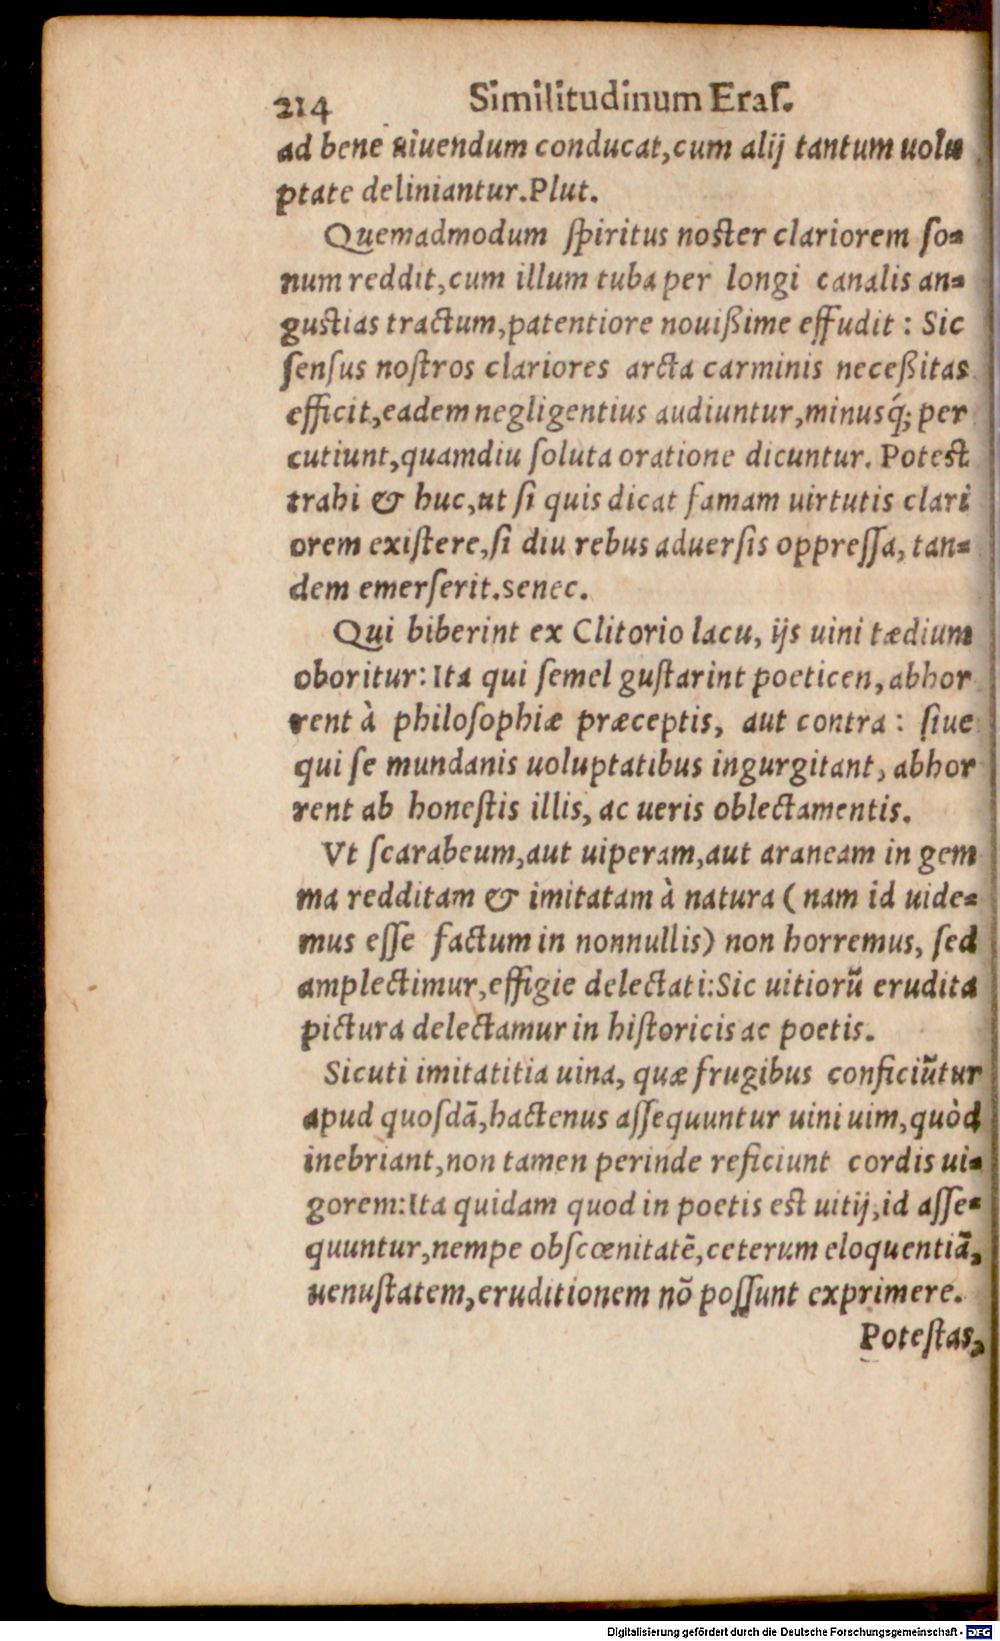 214 Similitudinum Eraſ.
ad bene uiuendum conducat,cum alij tantum uolu
ptate deliniantur.Plut.
Quemadmodum ſpiritus noster clariorem ſo-
num reddit,cum illum tuba per longi canalis an-
gustias tractum,patentiore nouißime effudit : Sic
ſenſus noſtros clariores arcta carminis neceßitas
efficit,eadem negligentius audiuntur,minusq́; per
cutiunt,quamdiu ſoluta oratione dicuntur. Potest
trahi & huc,ut ſi quis dicat famam uirtutis clari
orem exiſtere,ſi diu rebus aduerſis oppreſſa, tan-
dem emerſerit.senec.
Qui biberint ex Clitorio lacu, ijs uini tædium
oboritur: Ita qui ſemel guſtarint poeticen, abhor
rent à philoſophiæ præceptis, aut contra : ſiue
qui ſe mundanis uoluptatibus ingurgitant, abhor
rent ab honeſtis illis, ac ueris oblectamentis.
Vt ſcarabeum,aut uiperam,aut araneam in gem
ma redditam & imitatam à natura ( nam id uide-
mus eſſe factum in nonnullis) non horremus, ſed
amplectimur,effigie delectati:Sic uitiorũ erudita
pictura delectamur in hiſtoricis ac poetis.
Sicuti imitatitia uina, quæ frugibus conficiũtur
apud quoſdã,hactenus aſſequuntur uini uim,quòd
inebriant,non tamen perinde reficiunt cordis ui-
gorem:Ita quidam quod in poetis est uitij,id aſſe-
quuntur,nempe obſcœnitatẽ,ceterum eloquentiã,
uenuſtatem,eruditionem nõ poſſunt exprimere.
Poteſtas,
Digitalisierung gefördert durch die Deutsche Forschungsgemeinschaft - DFG